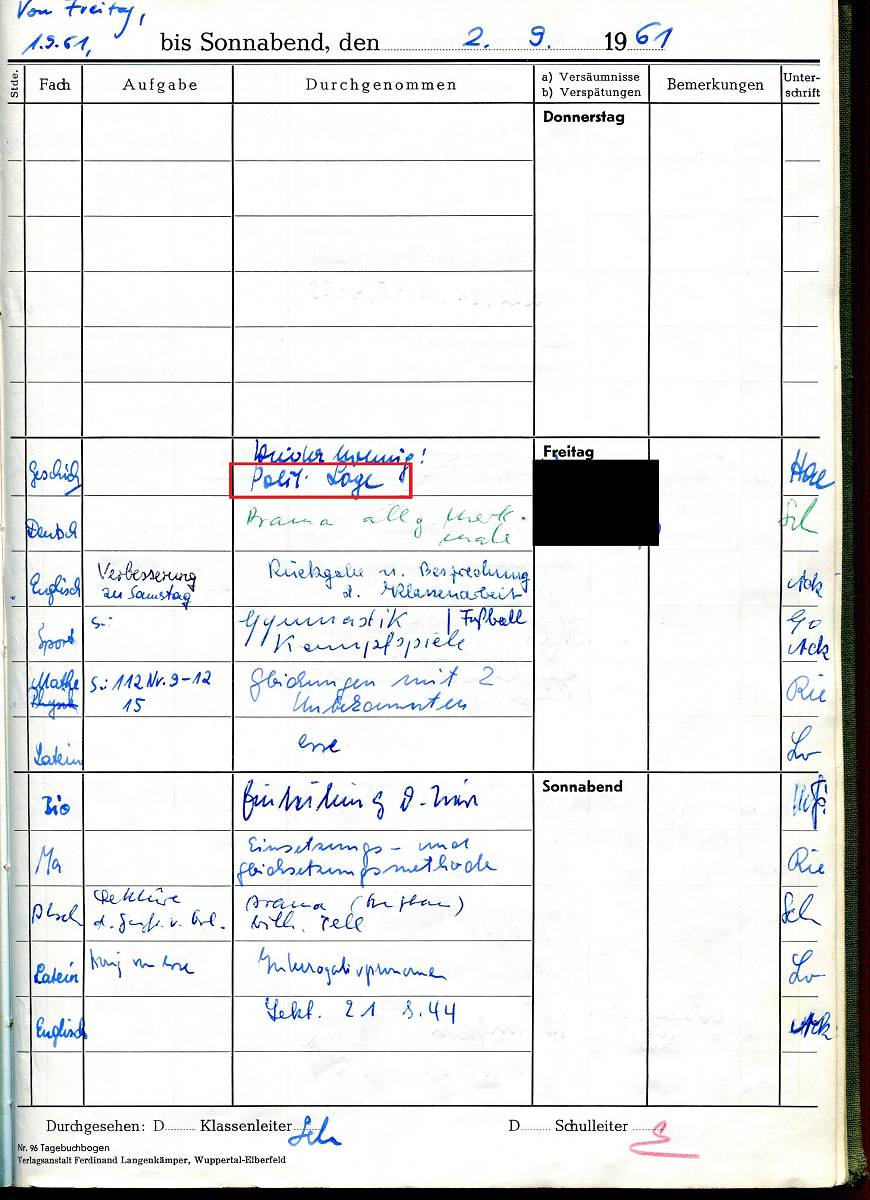 Von Freitag,
1.9.61, bis Sonnabend, den 2. 9. 1961
Stde. Fach Aufgabe Durchgenommen a) Versäumnisse b) Verspätungen Bemerkungen Unter-schrift
Donnerstag
Wiederholung! Freitag
Geschich Polit. Lage
Deutsch Drama allg. Merk-
male Sch
Englisch Verbesserung Rückgabe u. Besprechung
zu Samstag d. Klassenarbeit Ack
S: Gymnastik | Fußball Go
Sport Kampfspiele Ack
Mathe S: 112 Nr. 9-12 Gleichungen mit 2 Rie
15 Unbekannten
Latein esse Lv
Sonnabend
Bio
Ma Einsetzungs- und Rie
Gleichsetzungsmethode
Lektüre Drama
Dtsch Wilh. Tell Sch
Latein Interrogativpronomen Lv
Englisch Lekt. 21 S. 44 Ack
Durchgesehen: D Klassenleiter Sch D Schulleiter
Nr. 96 Tagebuchbogen
Verlagsanstalt Ferdinand Langenkämper, Wuppertal-Elberfeld